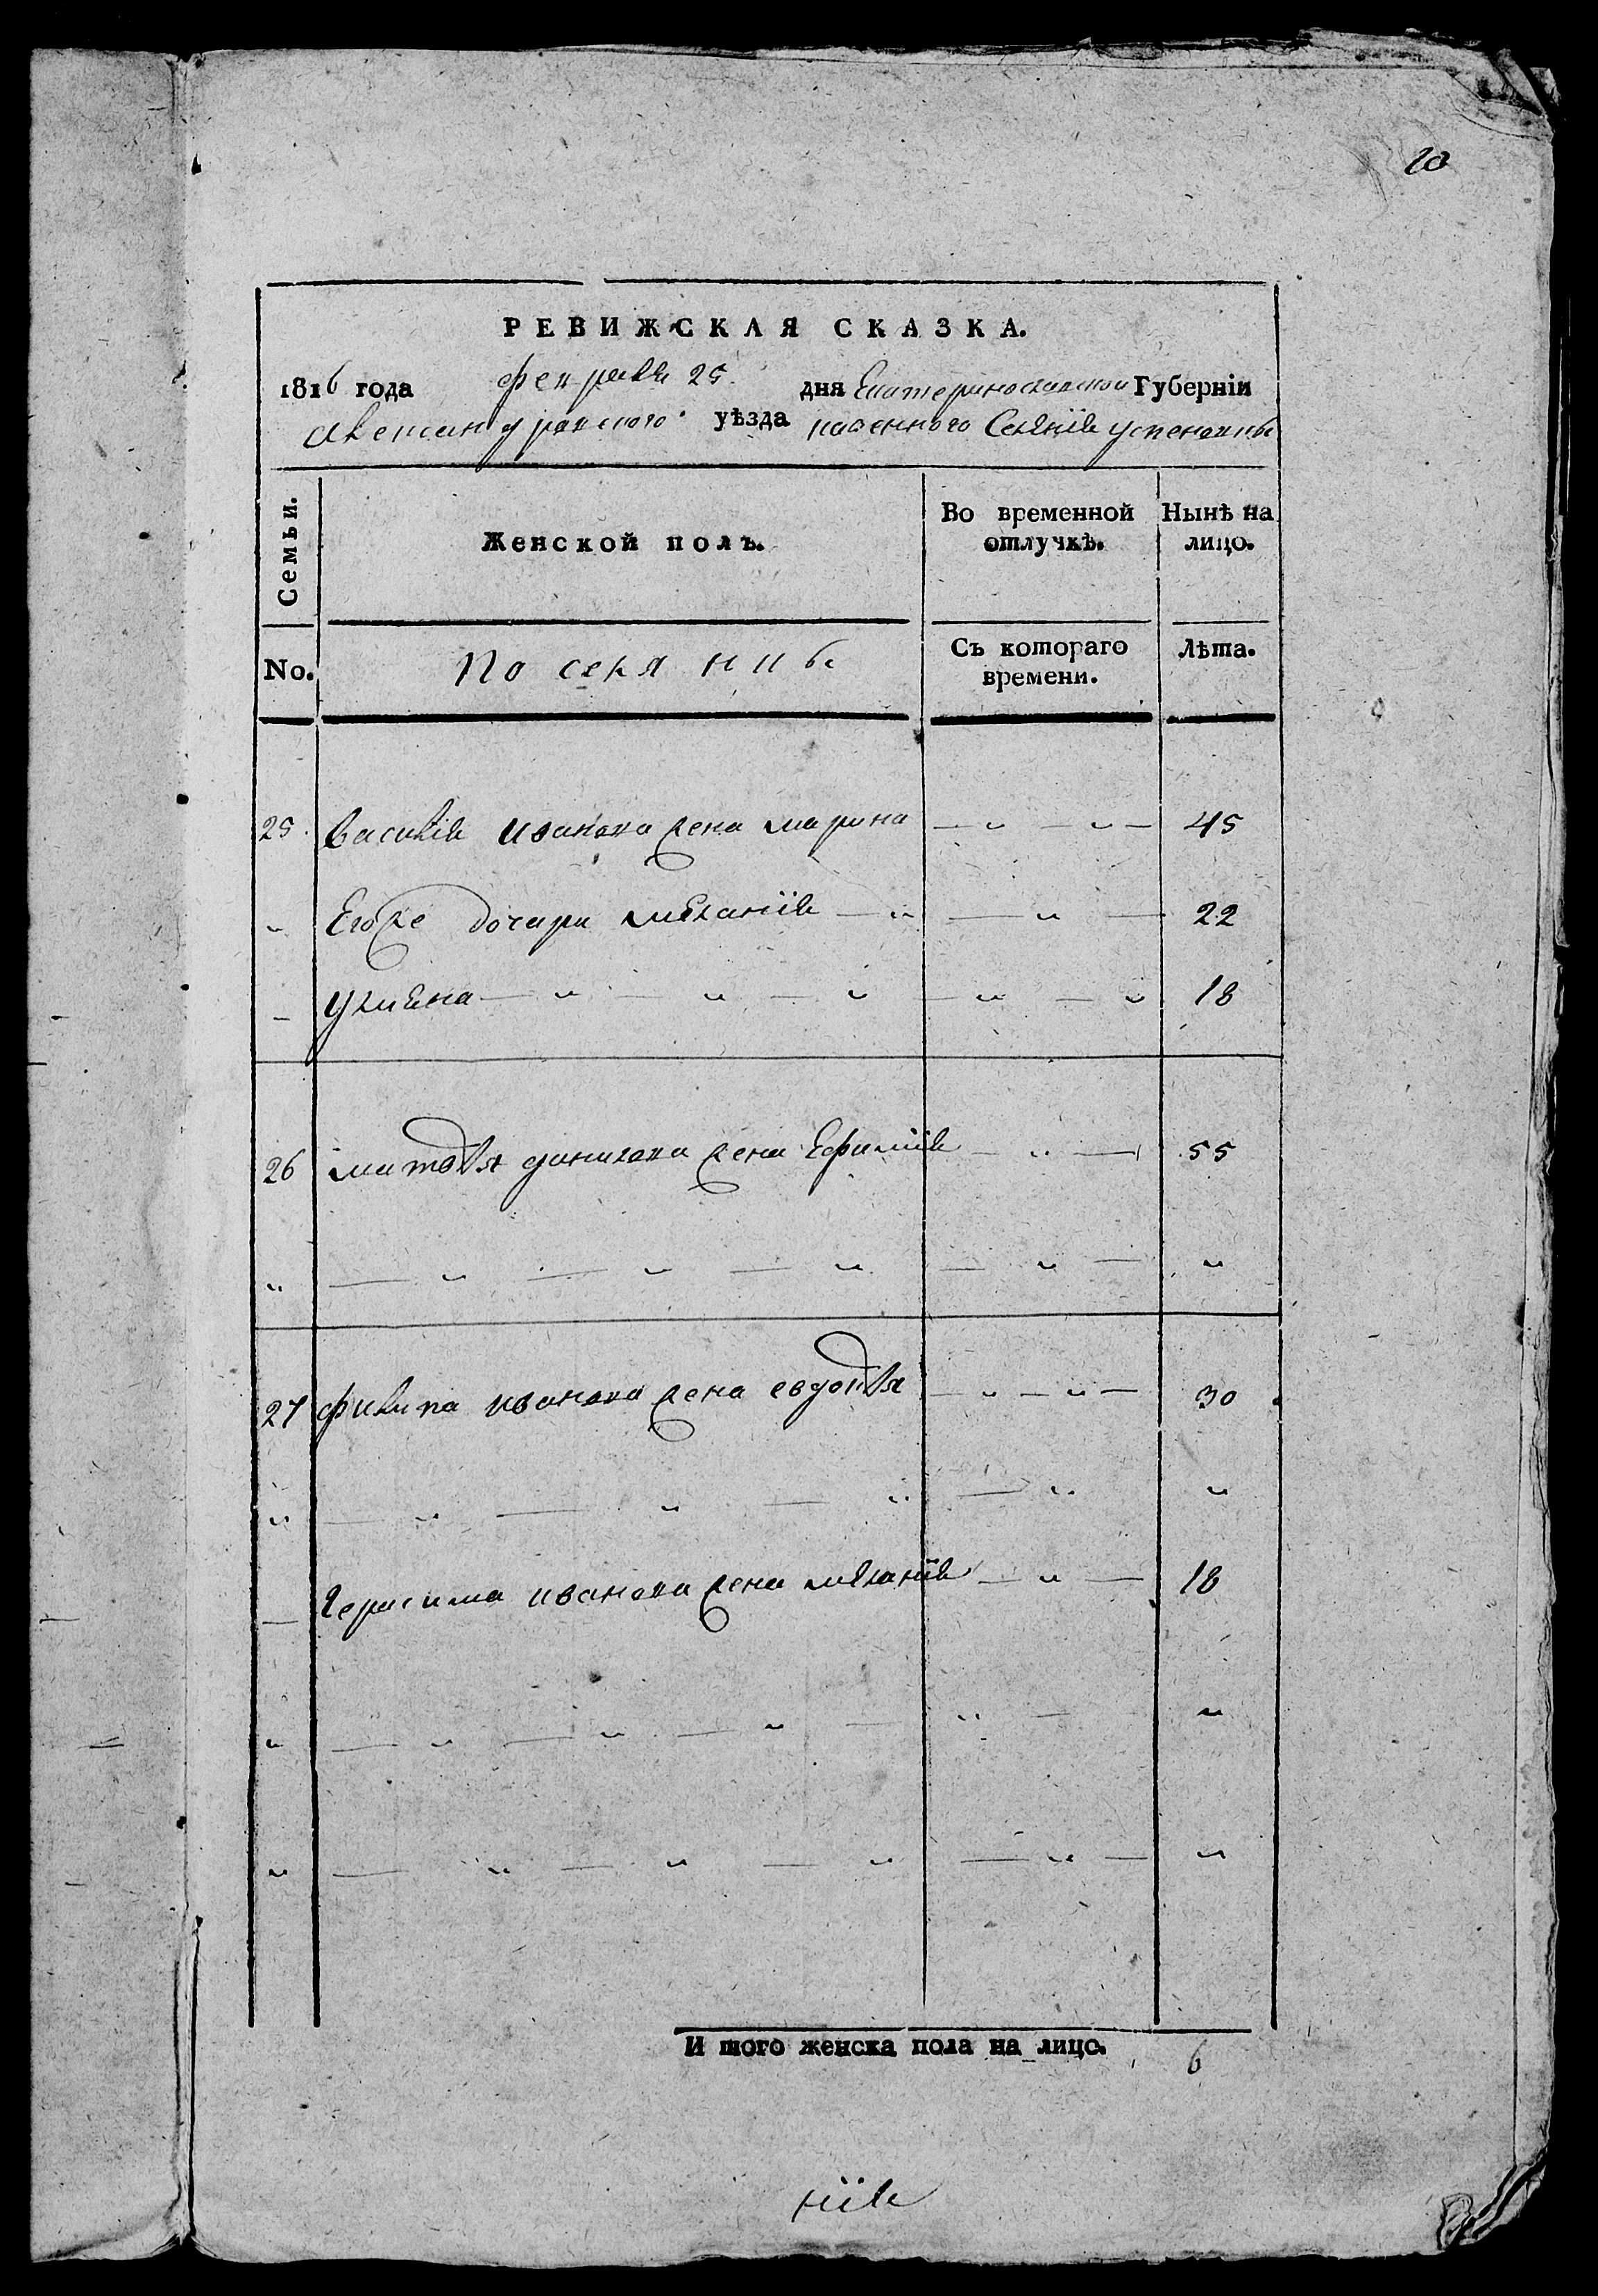 20
РЕВИЖСКАЯ СКАЗКА.
1816 года февраля 25 дня Екатеринославской Губерніи
Александровского уѣзда казенного Селенія успеновки
Семьи.
Женской полъ.
Во временной отлучкѣ.
Нынѣ на лицо.
No.
Поселяния
Съ котораго времени.
Лѣта.
25 василія иванова жена марина 45
Егоже дочери меланія 22
улиена 18
26 матвея данилова жена Ефимія 55
27 филипа иванова жена евдокея 30
Герасима иванова жена меланія 18
И того женска пола на лицо. 6
нія